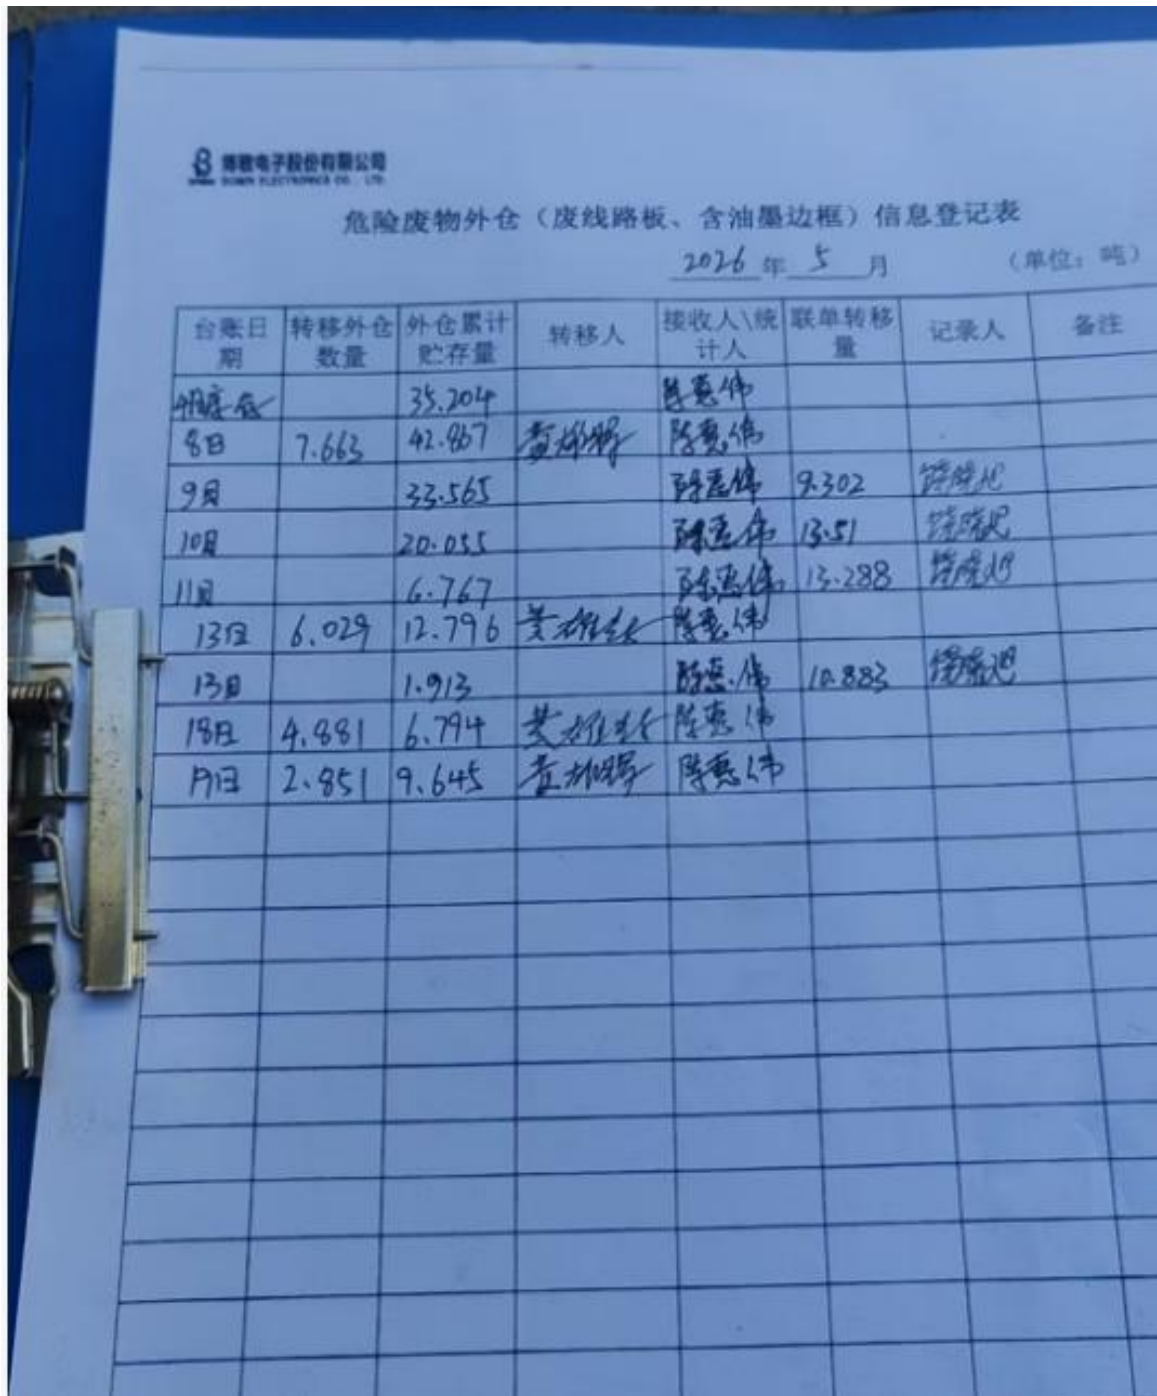 博敏电子股份有限公司
BOMIN ELECTRONICS CO., LTD.
危险废物外仓（废线路板、含油墨边框）信息登记表
2026 年 5 月 （单位：吨）
台账日期 转移外仓数量 外仓累计贮存量 转移人 接收人\统计人 联单转移量 记录人 备注
4月库存 35.204 陈惠伟
8日 7.663 42.867 陈惠伟
9日 33.565 陈惠伟 9.302
10日 20.055 陈惠伟 13.51
11日 6.767 陈惠伟 13.288
13日 6.029 12.796 陈惠伟
13日 1.913 陈惠伟 10.883
18日 4.881 6.794 陈惠伟
19日 2.851 9.645 陈惠伟